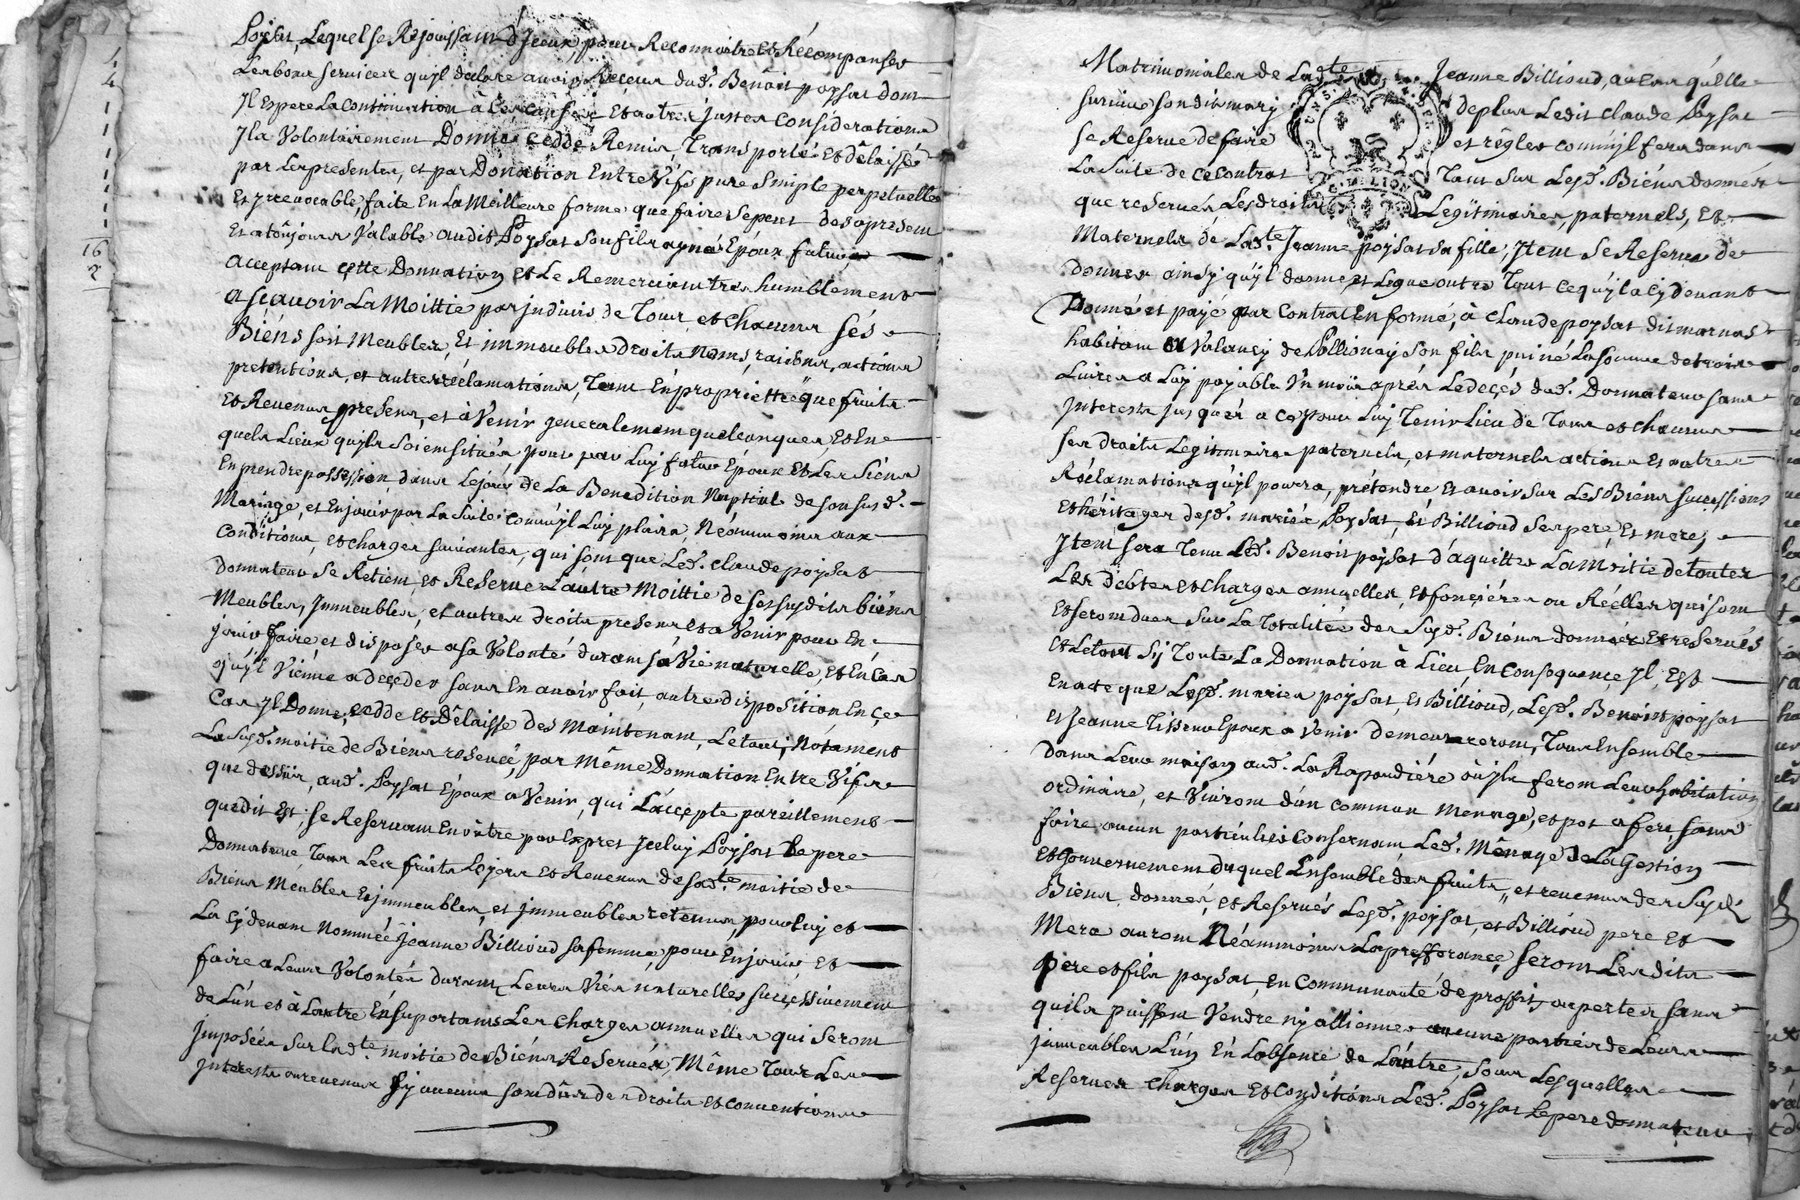 poysat, Lequel se Rejouissant d'Iceux, pour Reconnoitre et Récompanser
Les bons services qu'jl declare avoir Receus dud. Benôit poysat dont
Jl Espere La continuation à l'et autres justes considerations
Jl a Volontairement Donné Cedde Remis, Transporté et délaissé
par Les presentes, et par Donation Entre Vifs pure Simple perpetuelle
Et jrrevocable, faite En La Meilleure forme que faire Se peut des apresent
Et a toûjours Valable audit Poysat son fils ayné Epoux futur
acceptant cette Donnation et Le Remerciant tres humblement
a sçavoir La Moittie par jndivis de Tous et chacuns sés
Biéns soit Meubles, Et immeubles droits Noms, raisons, actions
pretentions, et autres réclamations, Tant En propriettée que fruits
Et Revenus presens, et à Venir generalement quelconques, Et En
quels Lieux qu'jls soient situés pour par Luy futur Epoux Et Les Siéns
En prendre possession dans Le jour de La Benedition Nuptiale de son susd.
Mariage, et En jouir par La suite comm'jl Luy plaira Néanmoins aux
conditions, et charges suivantes, qui sont que Led. claude poysat
Donnateur se Retient, et Reserve L'autre Moittie de ses susdits biéns
Meubles, Jmmeubles, et autres droits presens et a Venir pour En
jouir faire, et disposer a sa Volonté durant sa Vie naturelle, et En cas
qu'jl Viénne a deceder sans En avoir fait autre disposition En çe
Cas Jl Donne, cedde et Délaisse des Maintenant, Le tout, Notament
La susd. moitie de Biéns reservée, par Même Donnation Entre Vifs
que dessus, aud. Poysat Epoux a Venir, qui L'accepte pareillement
que dit Est, se Reservant En outre par Expres Jceluy Poysat Le pere
Donnateur, Tous Les fruits Loyers et Revenus de sad.te moitie de
Biéns Méubles et jmmeubles, et jmmeubles retenus, pour luy et
La cy devant Nommée Jeanne Billioud sa femme, pour En jouir et
faire a Leurs Volontés durant Leurs Viés naturelles successivement
de L'un et à L'autre En suportant Les charges annuelles qui seront
jmposées sur lad.te moitie de Biéns Reservés, Même Tous Les
jnterests ou revenus Sy aucuns sont dûs des droits et conventions
Matrimoniales de Lad.te Jeanne Billioud, au cas qu'elle
survive son dit mary de plus Ledit claude Poysat
se Reserve de faire et régler comm'jl fera dans
La suite de ce contrat Tant sur Lesd. Biéns donnés
que reservés, Les droits Legitimaires, paternels, Et
Maternels de Lad.te Jeanne poysat sa fille, Jtem se Reserve de
donner ainsy qu'jl donne et Legue outre Tout ce qu'jl a cy devant
Donné et payé par Contrat En forme, à claude poysat dit marnas
habitant a Valancy de Pollionay son fils puiné La somme de trois
Livres a Luy payable Un mois aprés Le decçés dud. Donnateur sans
jnterests jusques a ce pour Luy Tenir Lieu de Tous et chacuns
ses droits Legitimaires paternels, et maternels actions Et autres
Réclamations qu'jl pourra, prétendre et avoir sur Les Biéns successions
Et héritages desd. mariés Poysat, Et Billioud ses pere, Et mere,
Jtem sera Tenu Led. Benoit poysat d'aquitter La Moitie de toutes
Les debtes et charges annuelles, et foncieres ou Réelles qui sont
Et seront dues sur La Totalitée des susd. Biéns donnés Et reservés
Et Le tout Sy Toute La Donnation à Lieu, En consequence Jl Est
En acte que Lesd. mariés poysat, Et Billioud, Lesd. Benoist poysat
et Jeanne Tisseur Epoux a Venir demeureront, Tous Ensemble
dans Leur maison aud. La Rapaudiére où jls feront Leur habitation
ordinaire, et Vivront d'un commun menage, et pot a feu sans
faire aucun particulier Consernant Led. Ménage de La Gestion
Et Gouvernement duquel Ensemble des fruits, et revenus des susd.
Biéns, donnés, et Reservés Lesd. poysat, et Billioud pere Et
Mere auront Néammoins La prefferance, seront Lesdits
pere et fils poysat, En communauté de proffit, ou pertes sans
qu'ils puissent Vendre ny alliénner aucune parties de Leurs
jmmeubles L'un En L'absence de L'autre, sous Lesquelles
Reserves charges et conditions Led. Poysat Le pere donnateur